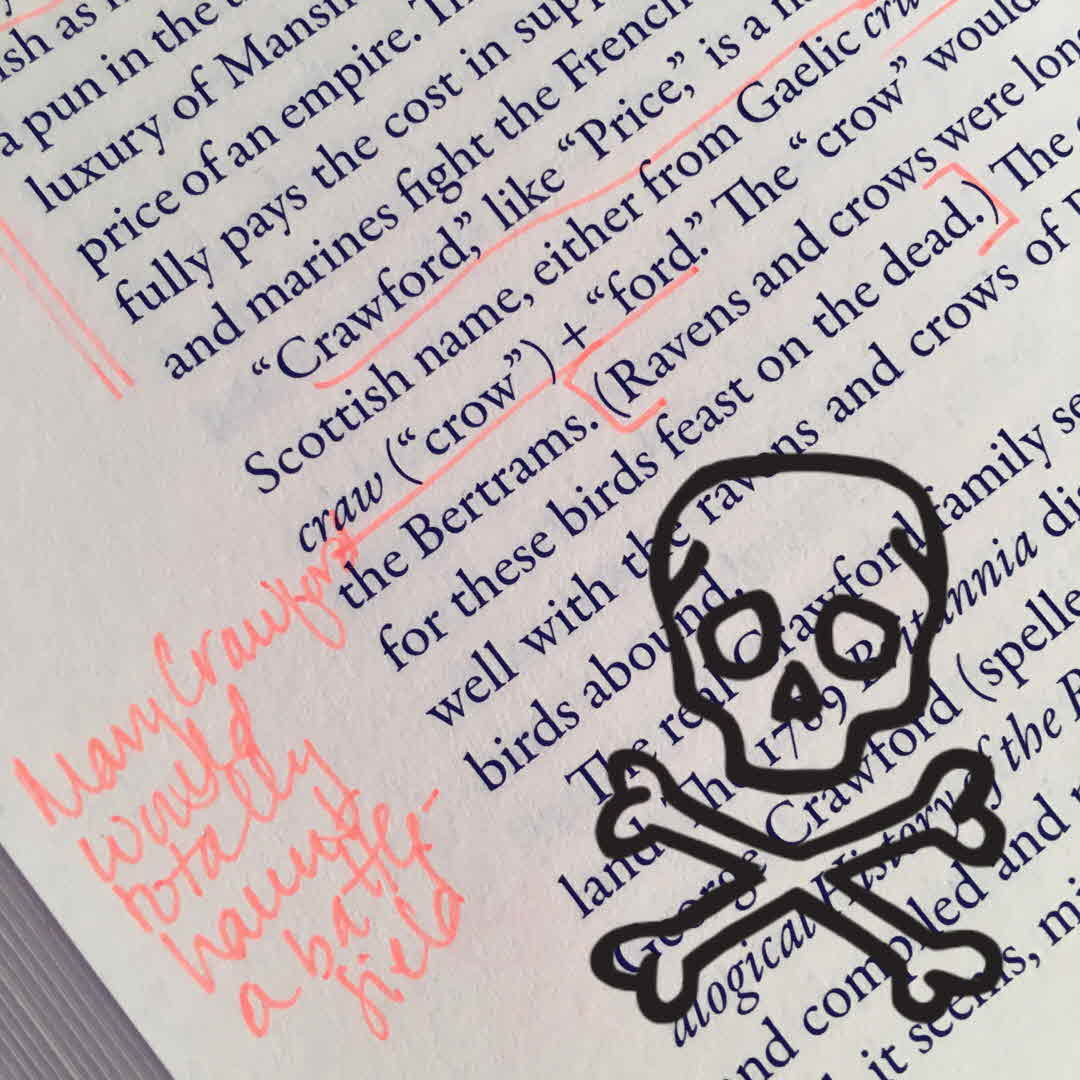 ish as
a pun in the
luxury of Mansfi
price of an empire. Th
fully pays the cost in supp
and marines fight the French
“Crawford,” like “Price,” is a n
Scottish name, either from Gaelic cru
craw (“crow”) + “ford.” The “crow” would
the Bertrams. (Ravens and crows were long
for these birds feast on the dead.) The
well with the ravens and crows of
birds abound.
The real Crawford family se
land. The 1769 Britannia di
George Crawford (spelle
alogical History of the B
and compiled and
it seems, mi
Mary Crawford
would
totally
haunt
a battle-
field